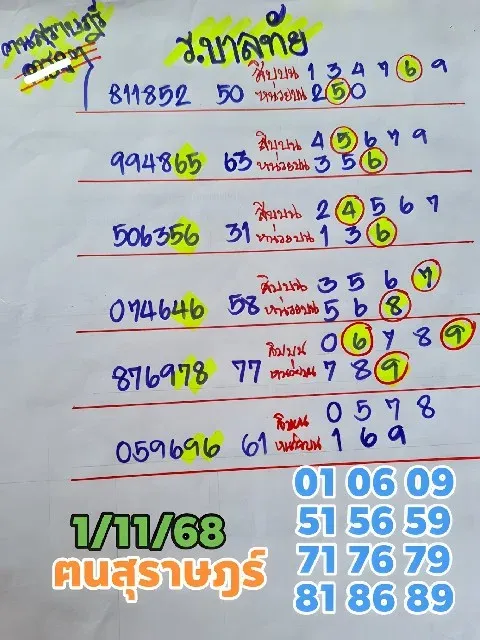 ฅนสุราษฎร์
ร.บาลทัย
สิบบน 1 3 4 7 6 9
811852 50 หน่วยบน 2 5 0
สิบบน 4 5 6 7 9
994865 63 หน่วยบน 3 5 6
สิบบน 2 4 5 6 7
506356 31 หน่วยบน 1 3 6
สิบบน 3 5 6 7
074646 58 หน่วยบน 5 6 8
สิบบน 0 6 7 8 9
876978 77 หน่วยบน 7 8 9
สิบบน 0 5 7 8
059696 61 หน่วยบน 1 6 9
01 06 09
51 56 59
71 76 79
81 86 89
1/11/68
ฅนสุราษฎร์